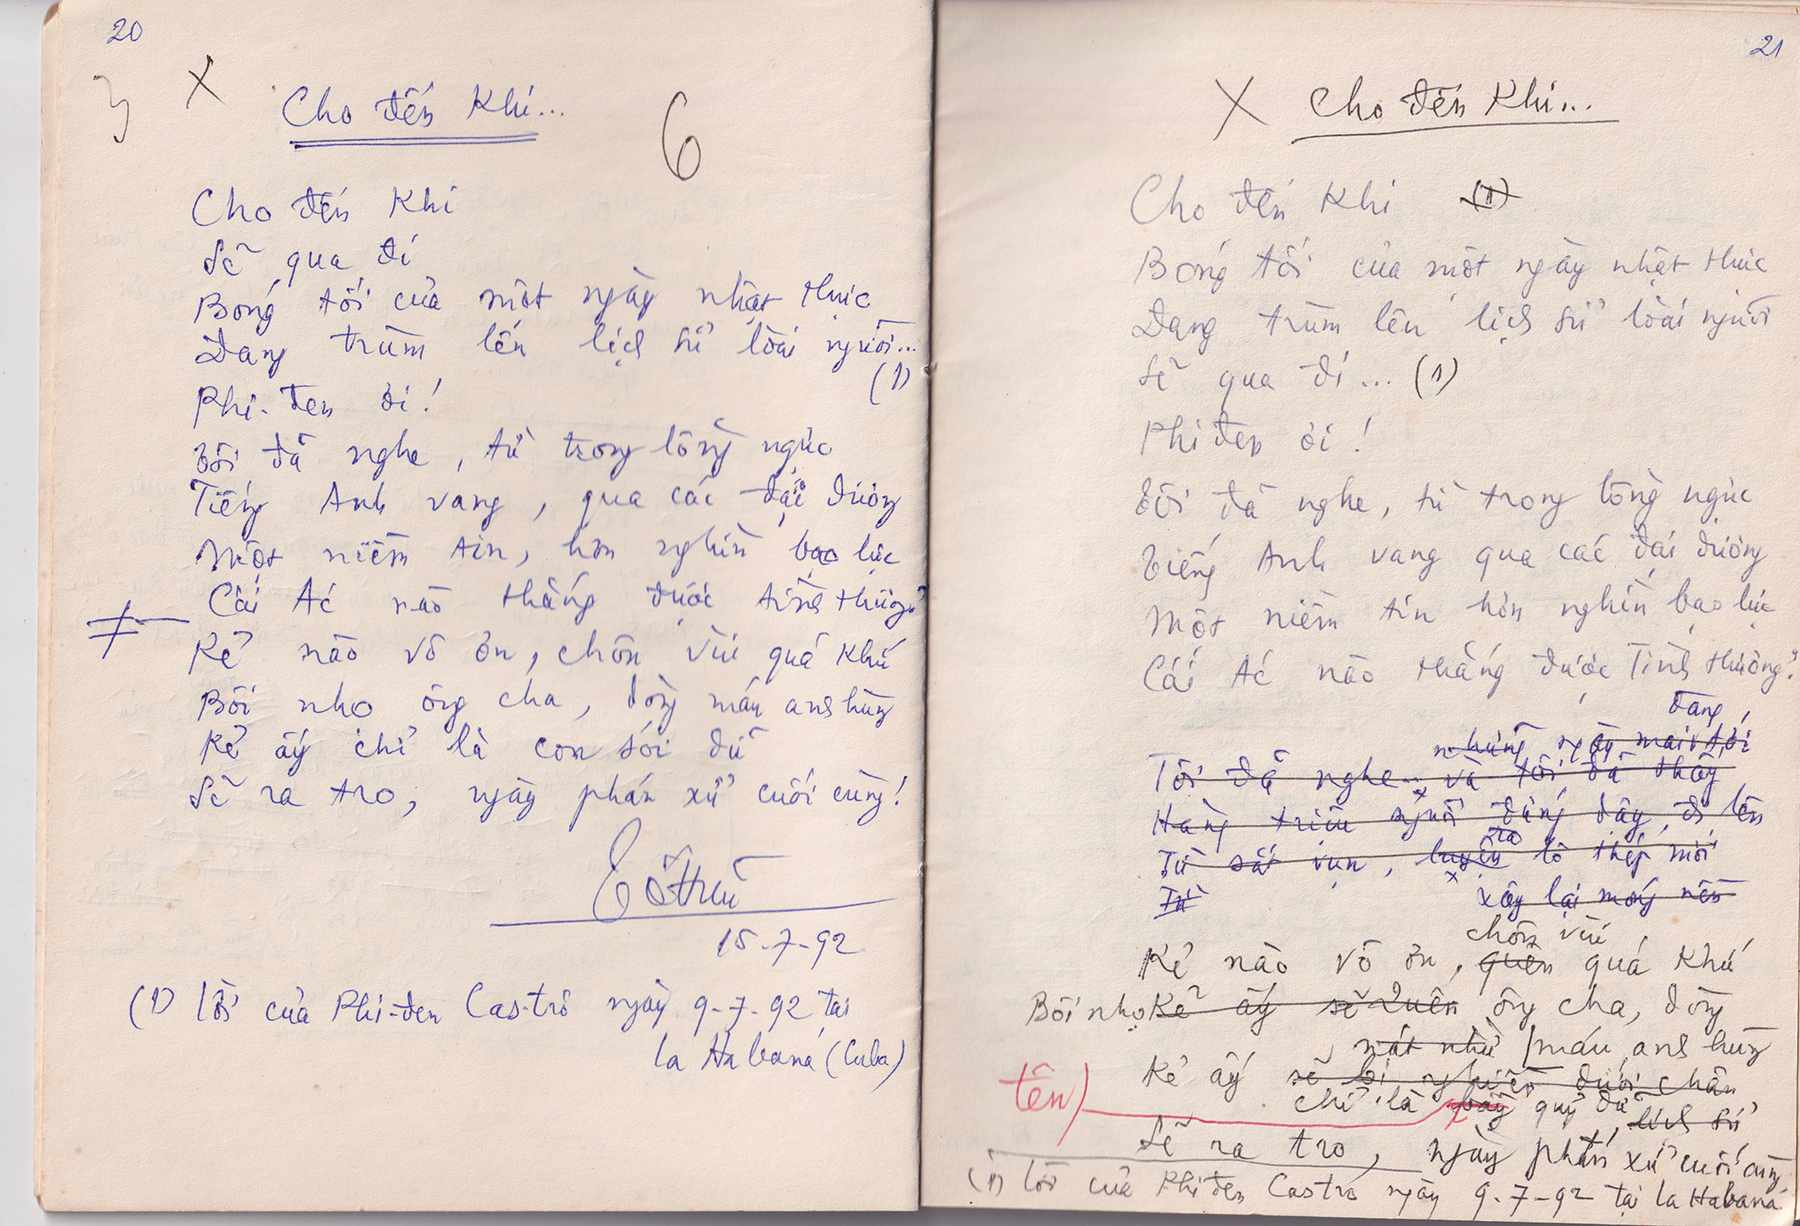 20
X
Cho đến Khi...
6
Cho đến Khi
Sẽ qua đi
Bóng tối của một ngày nhật thực
Đang trùm lên lịch sử loài người...
(1)
Phi-đen ơi!
Tôi đã nghe, từ trong lồng ngực
Tiếng Anh vang, qua các đại dương
Một niềm tin, hơn nghìn bạo lực
Cái Ác nào thắng được tình thương?
Kẻ nào vô ơn, chôn vùi quá khứ
Bôi nhọ ông cha, dòng máu anh hùng
Kẻ ấy chỉ là con sói dữ
Sẽ ra tro, ngày phán xử cuối cùng!
Tố Hữu
15-7-92
(1) Lời của Phi-đen Castrô ngày 9-7-92 tại
la Habana (Cuba)
21
X Cho đến Khi...
Cho đến Khi (1)
Bóng tối của một ngày nhật thực
Đang trùm lên lịch sử loài người
Sẽ qua đi... (1)
Phi đen ơi!
Tôi đã nghe, từ trong lồng ngực
Tiếng Anh vang qua các đại dương
Một niềm tin hơn nghìn bạo lực
Cái Ác nào thắng được Tình thương?
đang
những ngày mai tới
Tôi đã nghe... và tôi đã thấy
Hàng triệu người đứng dậy, đi lên
ra
Từ sắt vụn, luyện lò thép mới
Từ xây lại móng nền
chôn vùi
Kẻ nào vô ơn, quên quá khứ
Bôi nhọ Kẻ ấy sẽ quên ông cha, dòng
nát như máu anh hùng
Kẻ ấy sẽ bị nghiền dưới chân
tên) chỉ là bầy quỷ dữ lịch sử
Sẽ ra tro, ngày phán xử cuối cùng
(1) Lời của Phi đen Castrô ngày 9-7-92 tại la Habana